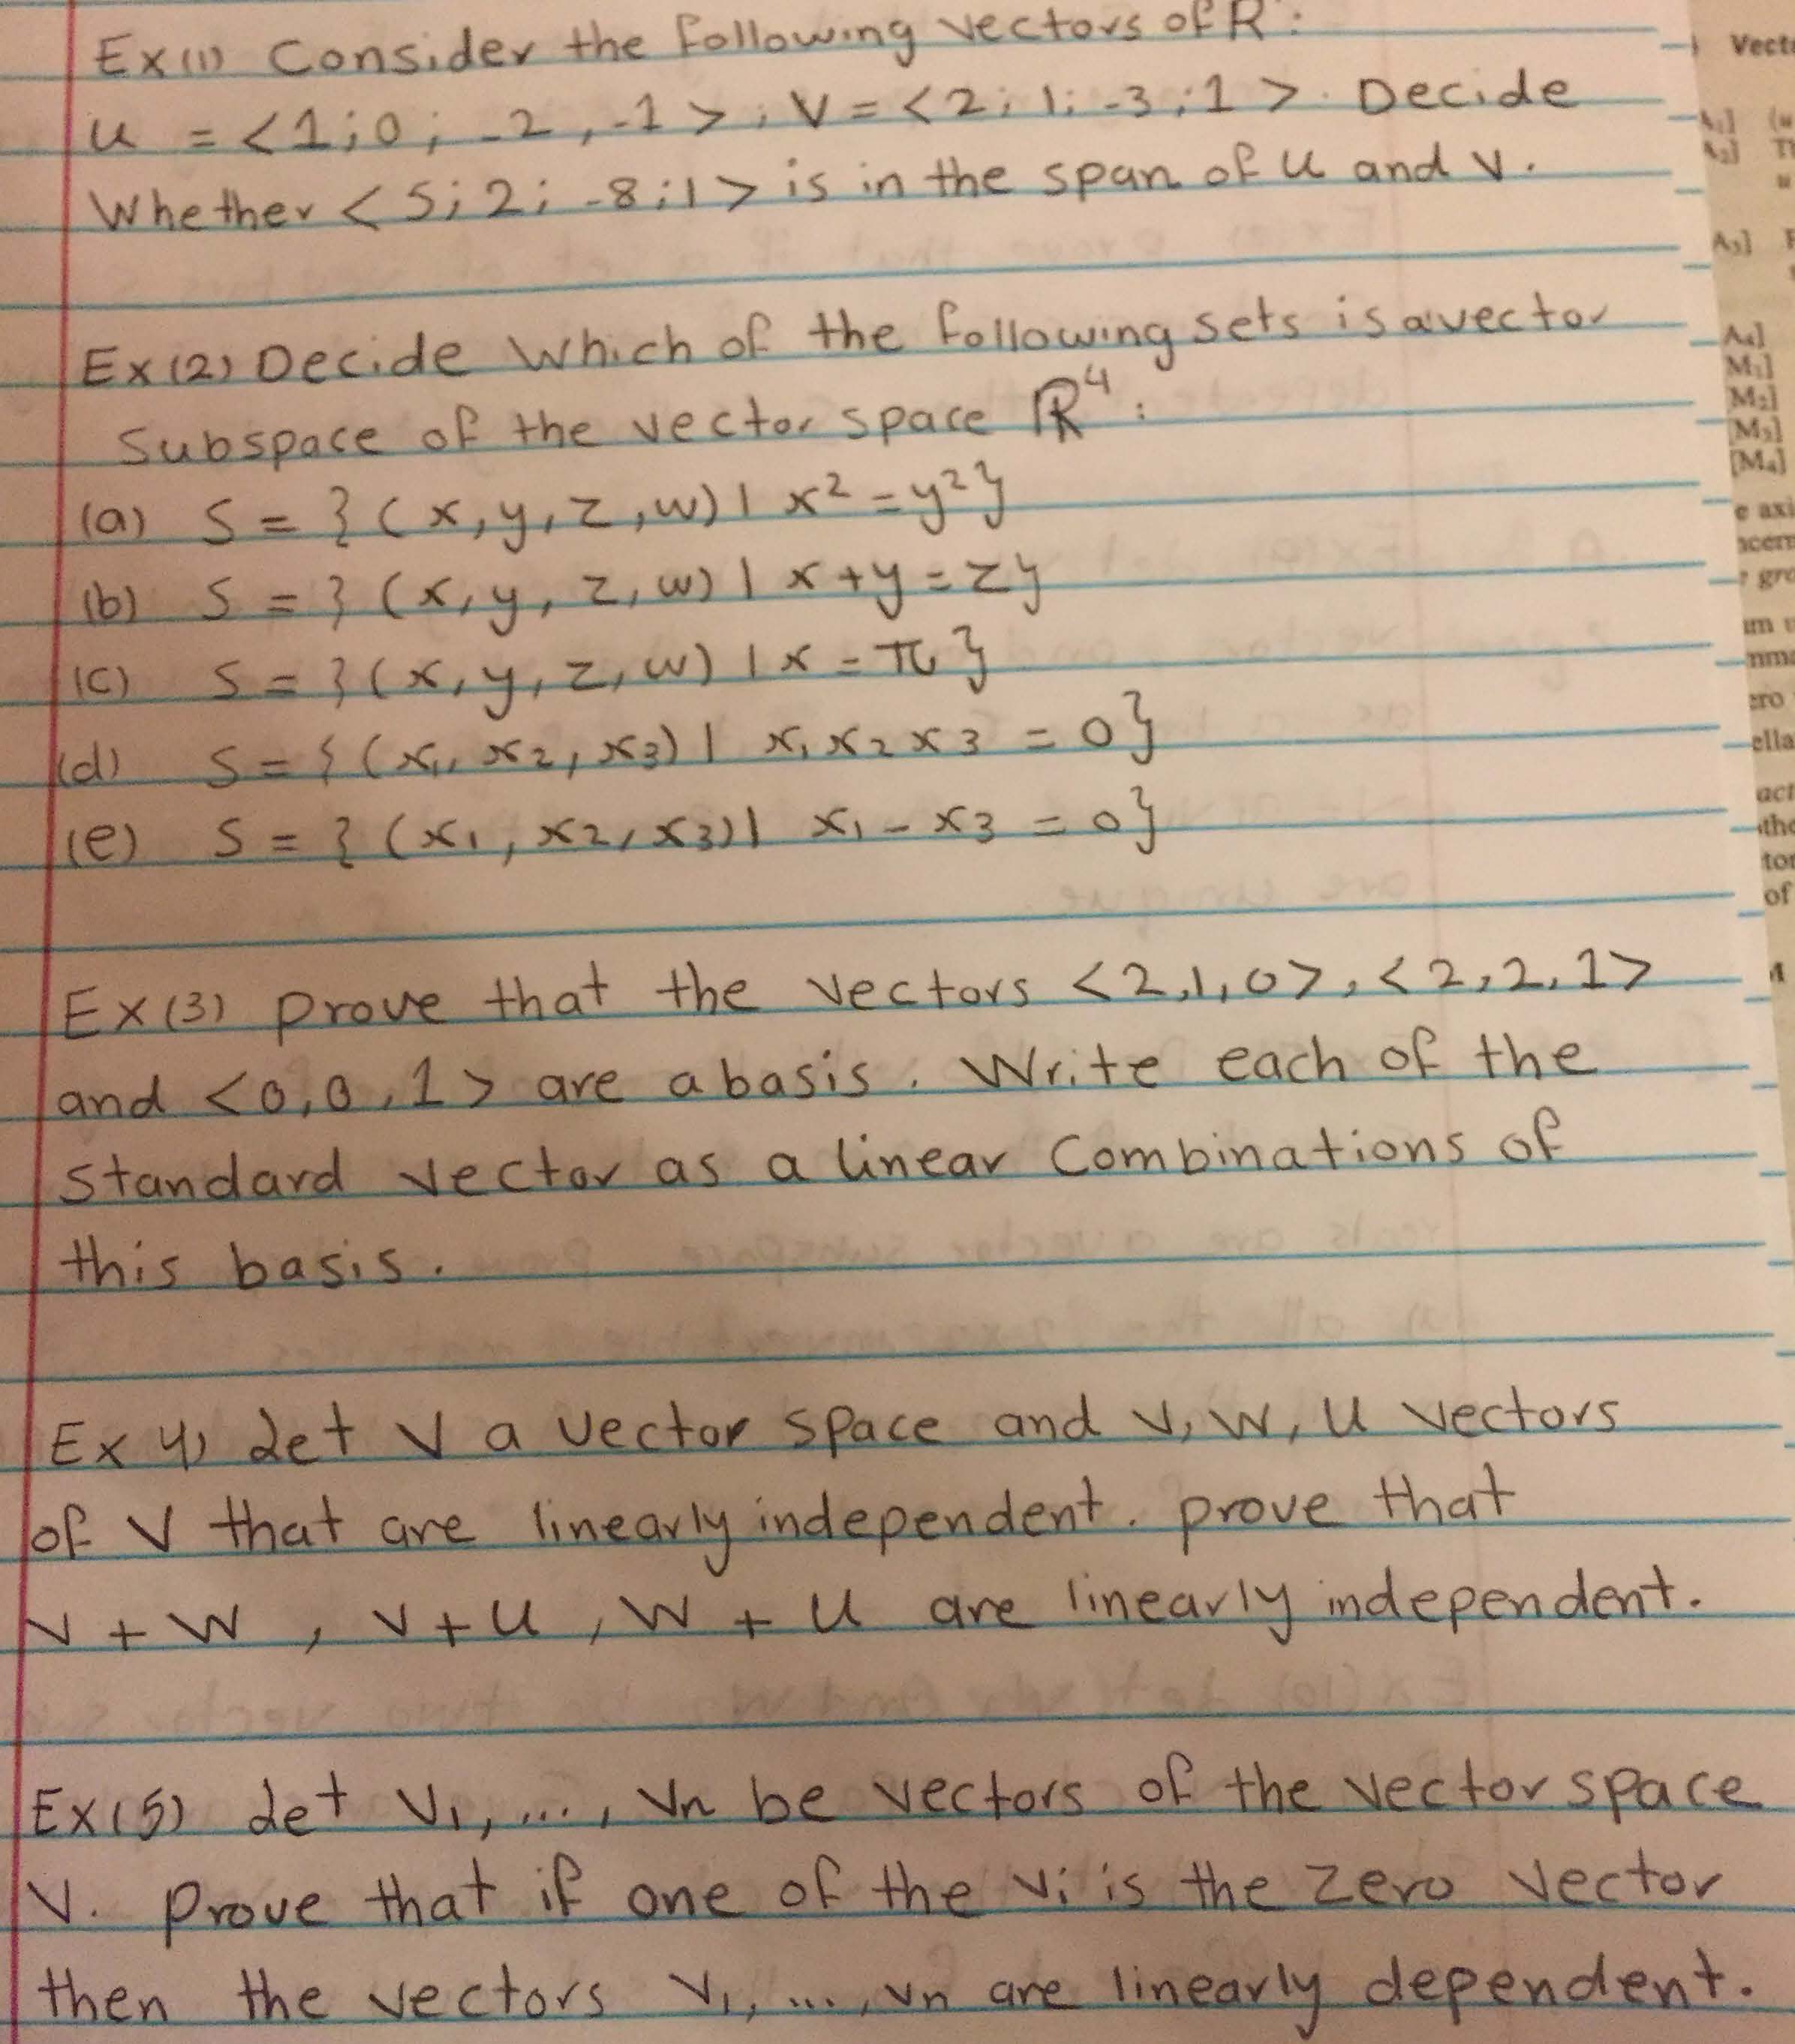 Ex(1) Consider the following vectors of R :
u = <1;0; -2, -1>; V = <2; 1; -3; 1>. Decide
Whether <5; 2; -8; 1> is in the span of u and v.
Ex(2) Decide Which of the following sets is a vector
Subspace of the vector space ℝ⁴:
(a) S = {(x, y, z, w) | x² = y²}
(b) S = {(x, y, z, w) | x + y = z}
(c) S = {(x, y, z, w) | x = π}
(d) S = {(x₁, x₂, x₃) | x₁ x₂ x₃ = 0}
(e) S = {(x₁, x₂, x₃) | x₁ - x₃ = 0}
Ex(3) prove that the vectors <2,1,0>, <2,2,1>
and <0,0,1> are a basis. Write each of the
standard vector as a linear Combinations of
this basis.
Ex 4) Let V a vector space and v, w, u vectors
of V that are linearly independent. prove that
v + w , v + u , w + u are linearly independent.
Ex(5) Let v₁, ..., vn be vectors of the vector space
V. prove that if one of the vi is the zero vector
then the vectors v₁, ..., vn are linearly dependent.
Vect
A₃]
A₄]
M₁]
M₂]
[M₃]
[M₄]